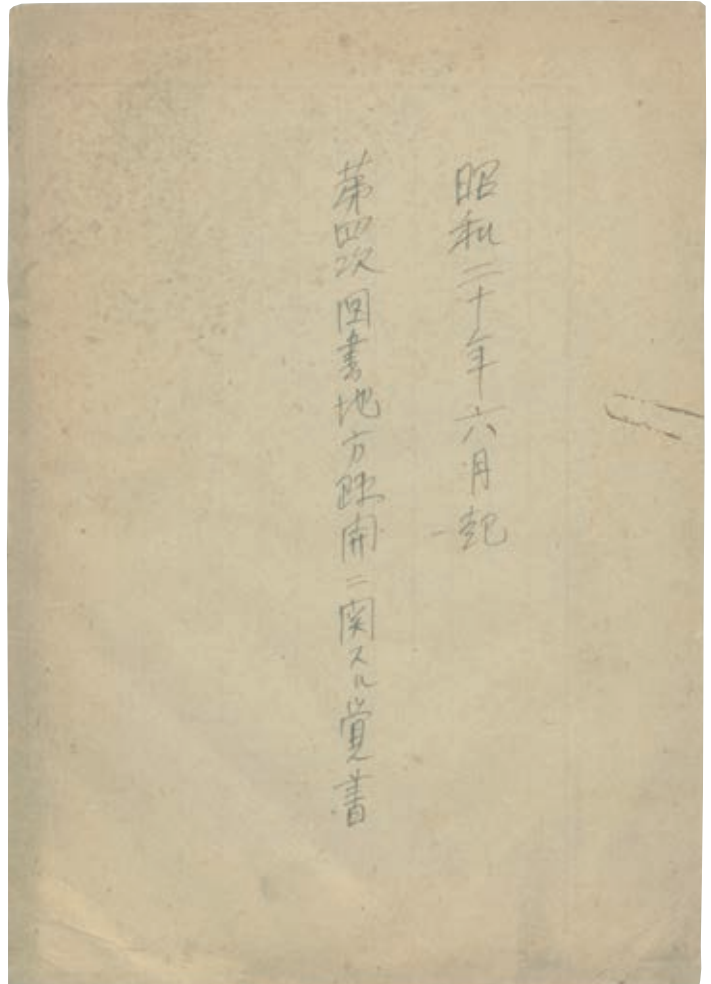 昭和二十年六月起
第四次図書地方疎開ニ関スル覚書